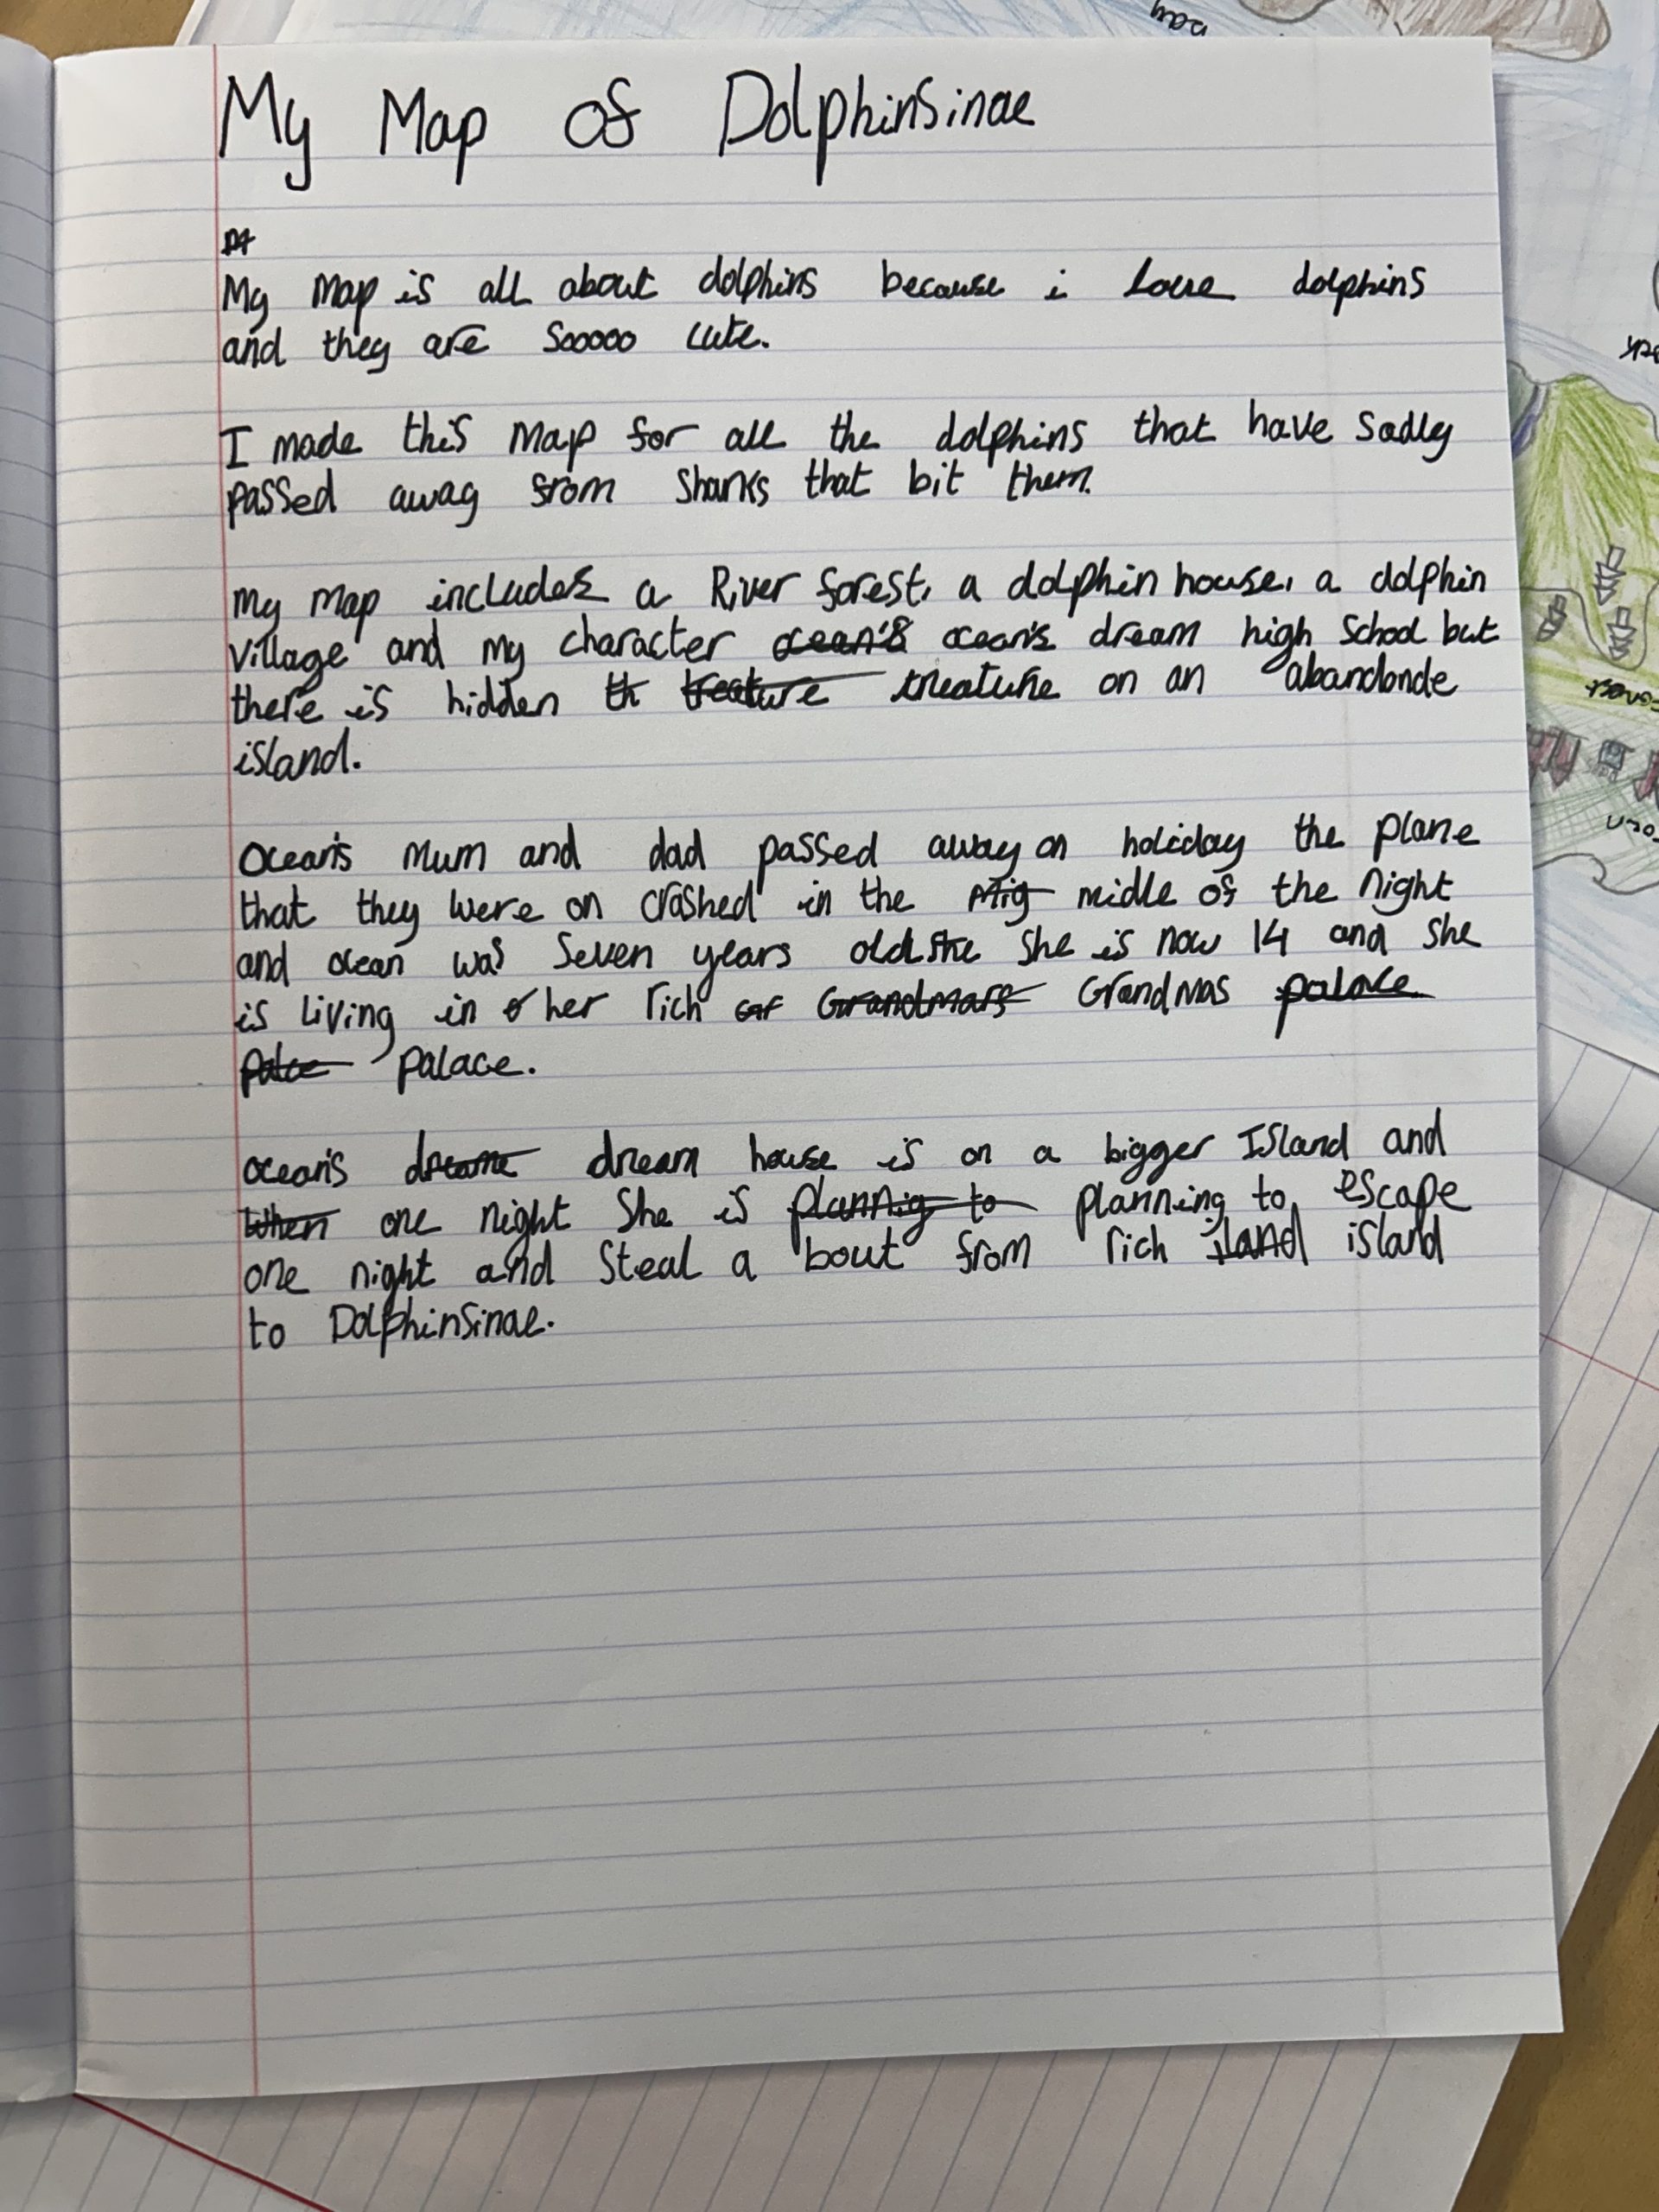 My Map of Dolphinsinae
My map is all about dolphins because i love dolphins
and they are Sooooo cute.
I made this map for all the dolphins that have sadly
passed away from Sharks that bit them.
My map includes a River forest, a dolphin house, a dolphin
village and my character ocean's ocean's dream high School but
there is hidden th treature treature on an abandonde
island.
Ocean's mum and dad passed away on holiday the plane
that they were on crashed in the Mig midle of the night
and ocean was Seven years old. She She is now 14 and She
is living in her rich Gr Grandmars Grandmas palace
palce palace.
ocean's dreame dream house is on a bigger Island and
When one night She is plannig to planning to escape
one night and Steal a bout from rich iland island
to Dolphinsinae.